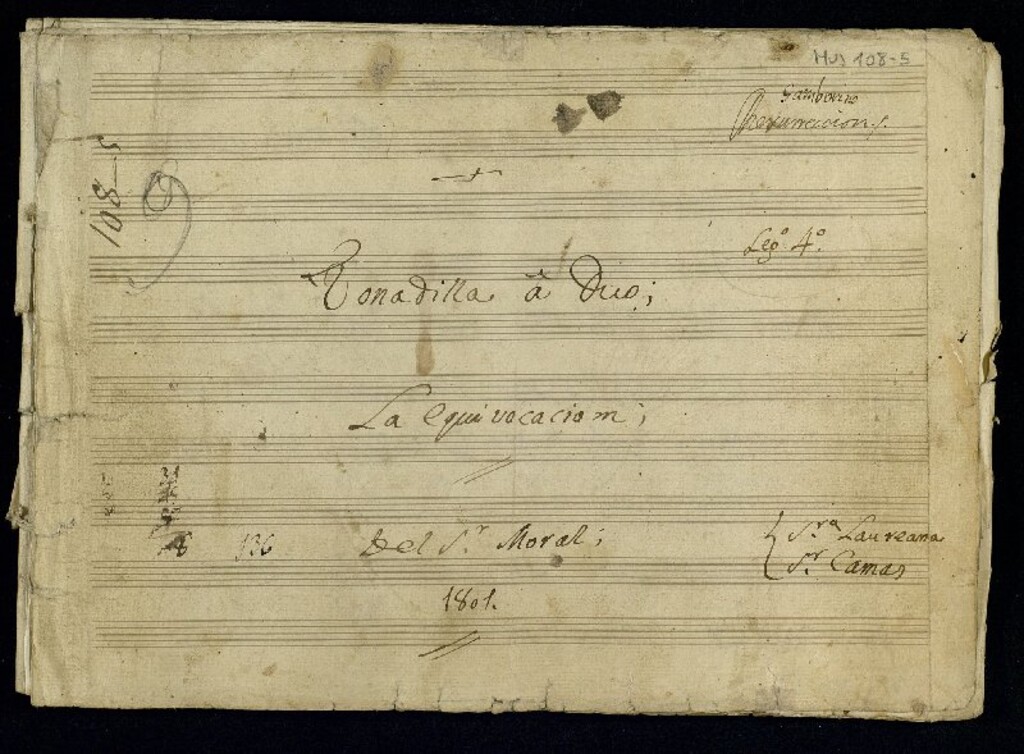 Mus 108-5
Gamborino
Resurreccion
108-5
Leg.º 4.º
Tonadilla â Duo;
La equivocaciom;
136
Del S.r Moral;
S.ra Laureana
S.r Camas
1801.